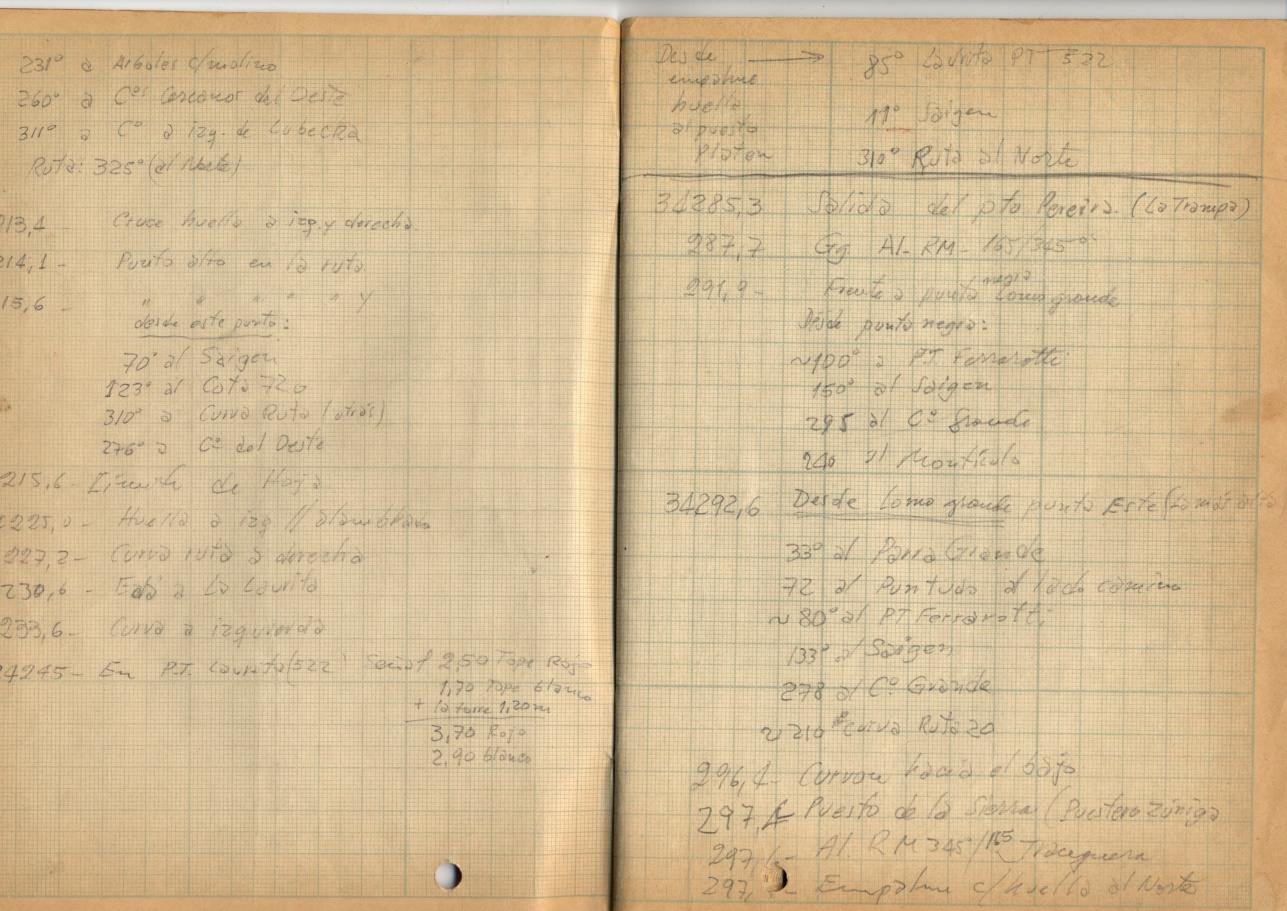 231° a Arboles c/molino
260° a Cºs Cercanos del Oeste
311° a Cº a izq. de Lubecka
Ruta: 325° (al Norte)
213,4 - Cruce huella a izq. y derecha.
214,1 - Punto alto en la ruta
15,6 - " " " " " y
desde este punto:
70° al Saigen
123° al Cota 720
310° a Curva Ruta (atrás)
276° a Cº del Oeste
215,6 - Límite de Hoja
225,0 - Huella a izq // alambrado
227,2 - Curva ruta a derecha
230,6 - Eda a La Laurita
233,6 - Curva a izquierda
34245 - En P.T. Laurita (522) Señal 2,50 Tope Rojo
1,70 Tope blanco
+ la torre 1,20m
3,70 Rojo
2,90 blanco
Desde → 85° Laurita PT 522
empalme
huella 11° Saigen
al puesto
Platen 310° Ruta al Norte
34285,3 Salida del pto Pereira. (La Trampa)
287,7 Gg. Al. RM - 165/345°
291,9 - Frente a punta negra Lomo grande
Desde punta negra:
~100° a P.T. Ferrarotti
150° al Saigen
295 al Cº Grande
240 al Montículo
34292,6 Desde Lomo grande punta Este (La más alta
33° al Parra Grande
72 al Puntudo al lado camino
~80° al PT Ferrarotti
133° al Saigen
278 al Cº Grande
~210° curva Ruta 20
296,4 - Curvon hacia el bajo
297, Puesto de la Sierra (Puestero Zúñiga
297, - Al. RM 345/165 Tranquera
297, - Empalme c/huella al Norte